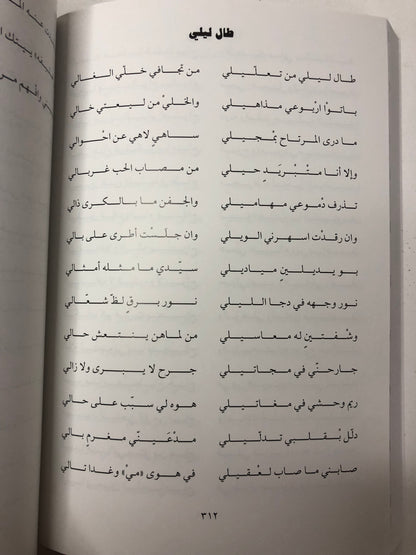 طال ليلي
طال ليلي من تعلّيلي من تجافي خلّي الغالي
باتوا اربوعي مذاهيلي والخليْ من ليعتي خالي
ما درى المرتاح بْمجيلي ساهيٍ لاهي عن احْوالي
وإلا أنا منبريَدٍ حيلي من مصاب الحب غربالي
تذرف دْموعي مهاميلي والجفن ما بالكرى ذالي
وان رقدْت اسهرني الويلي وان جلسْت أطرى على بالي
بو يديلينٍ مياديلي سيّدي ما مثله أمثالي
نور وجهه في دجا الليلي نور برقٍ لظّ شعّالي
وشْفتينٍ له معاسيلي من لماهن ينتعش حالي
جارحنّي في مجاتيلي جرح لا يبرى ولا زالي
ريم وحشي في مغاتيلي هوه لي سبّب على حالي
دلّل بْقلبي تدلّيلي مدْعيني مغرمٍ بالي
صابني ما صاب لعْقيلي في هوى «ميْ» وغدا تالي
٣١٢